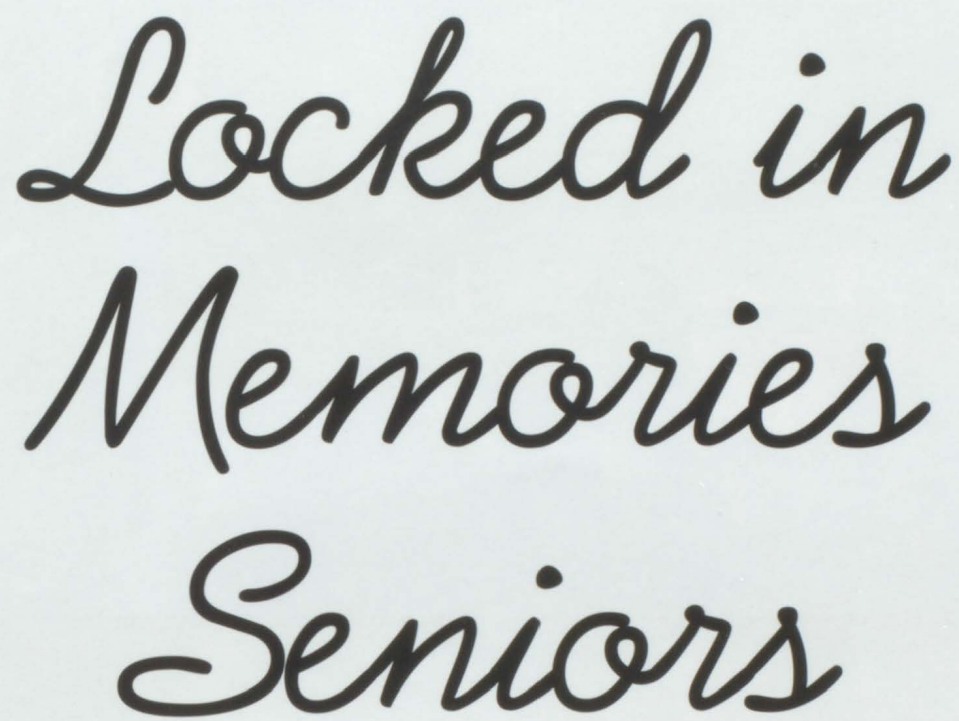 Locked in
Memories
Seniors